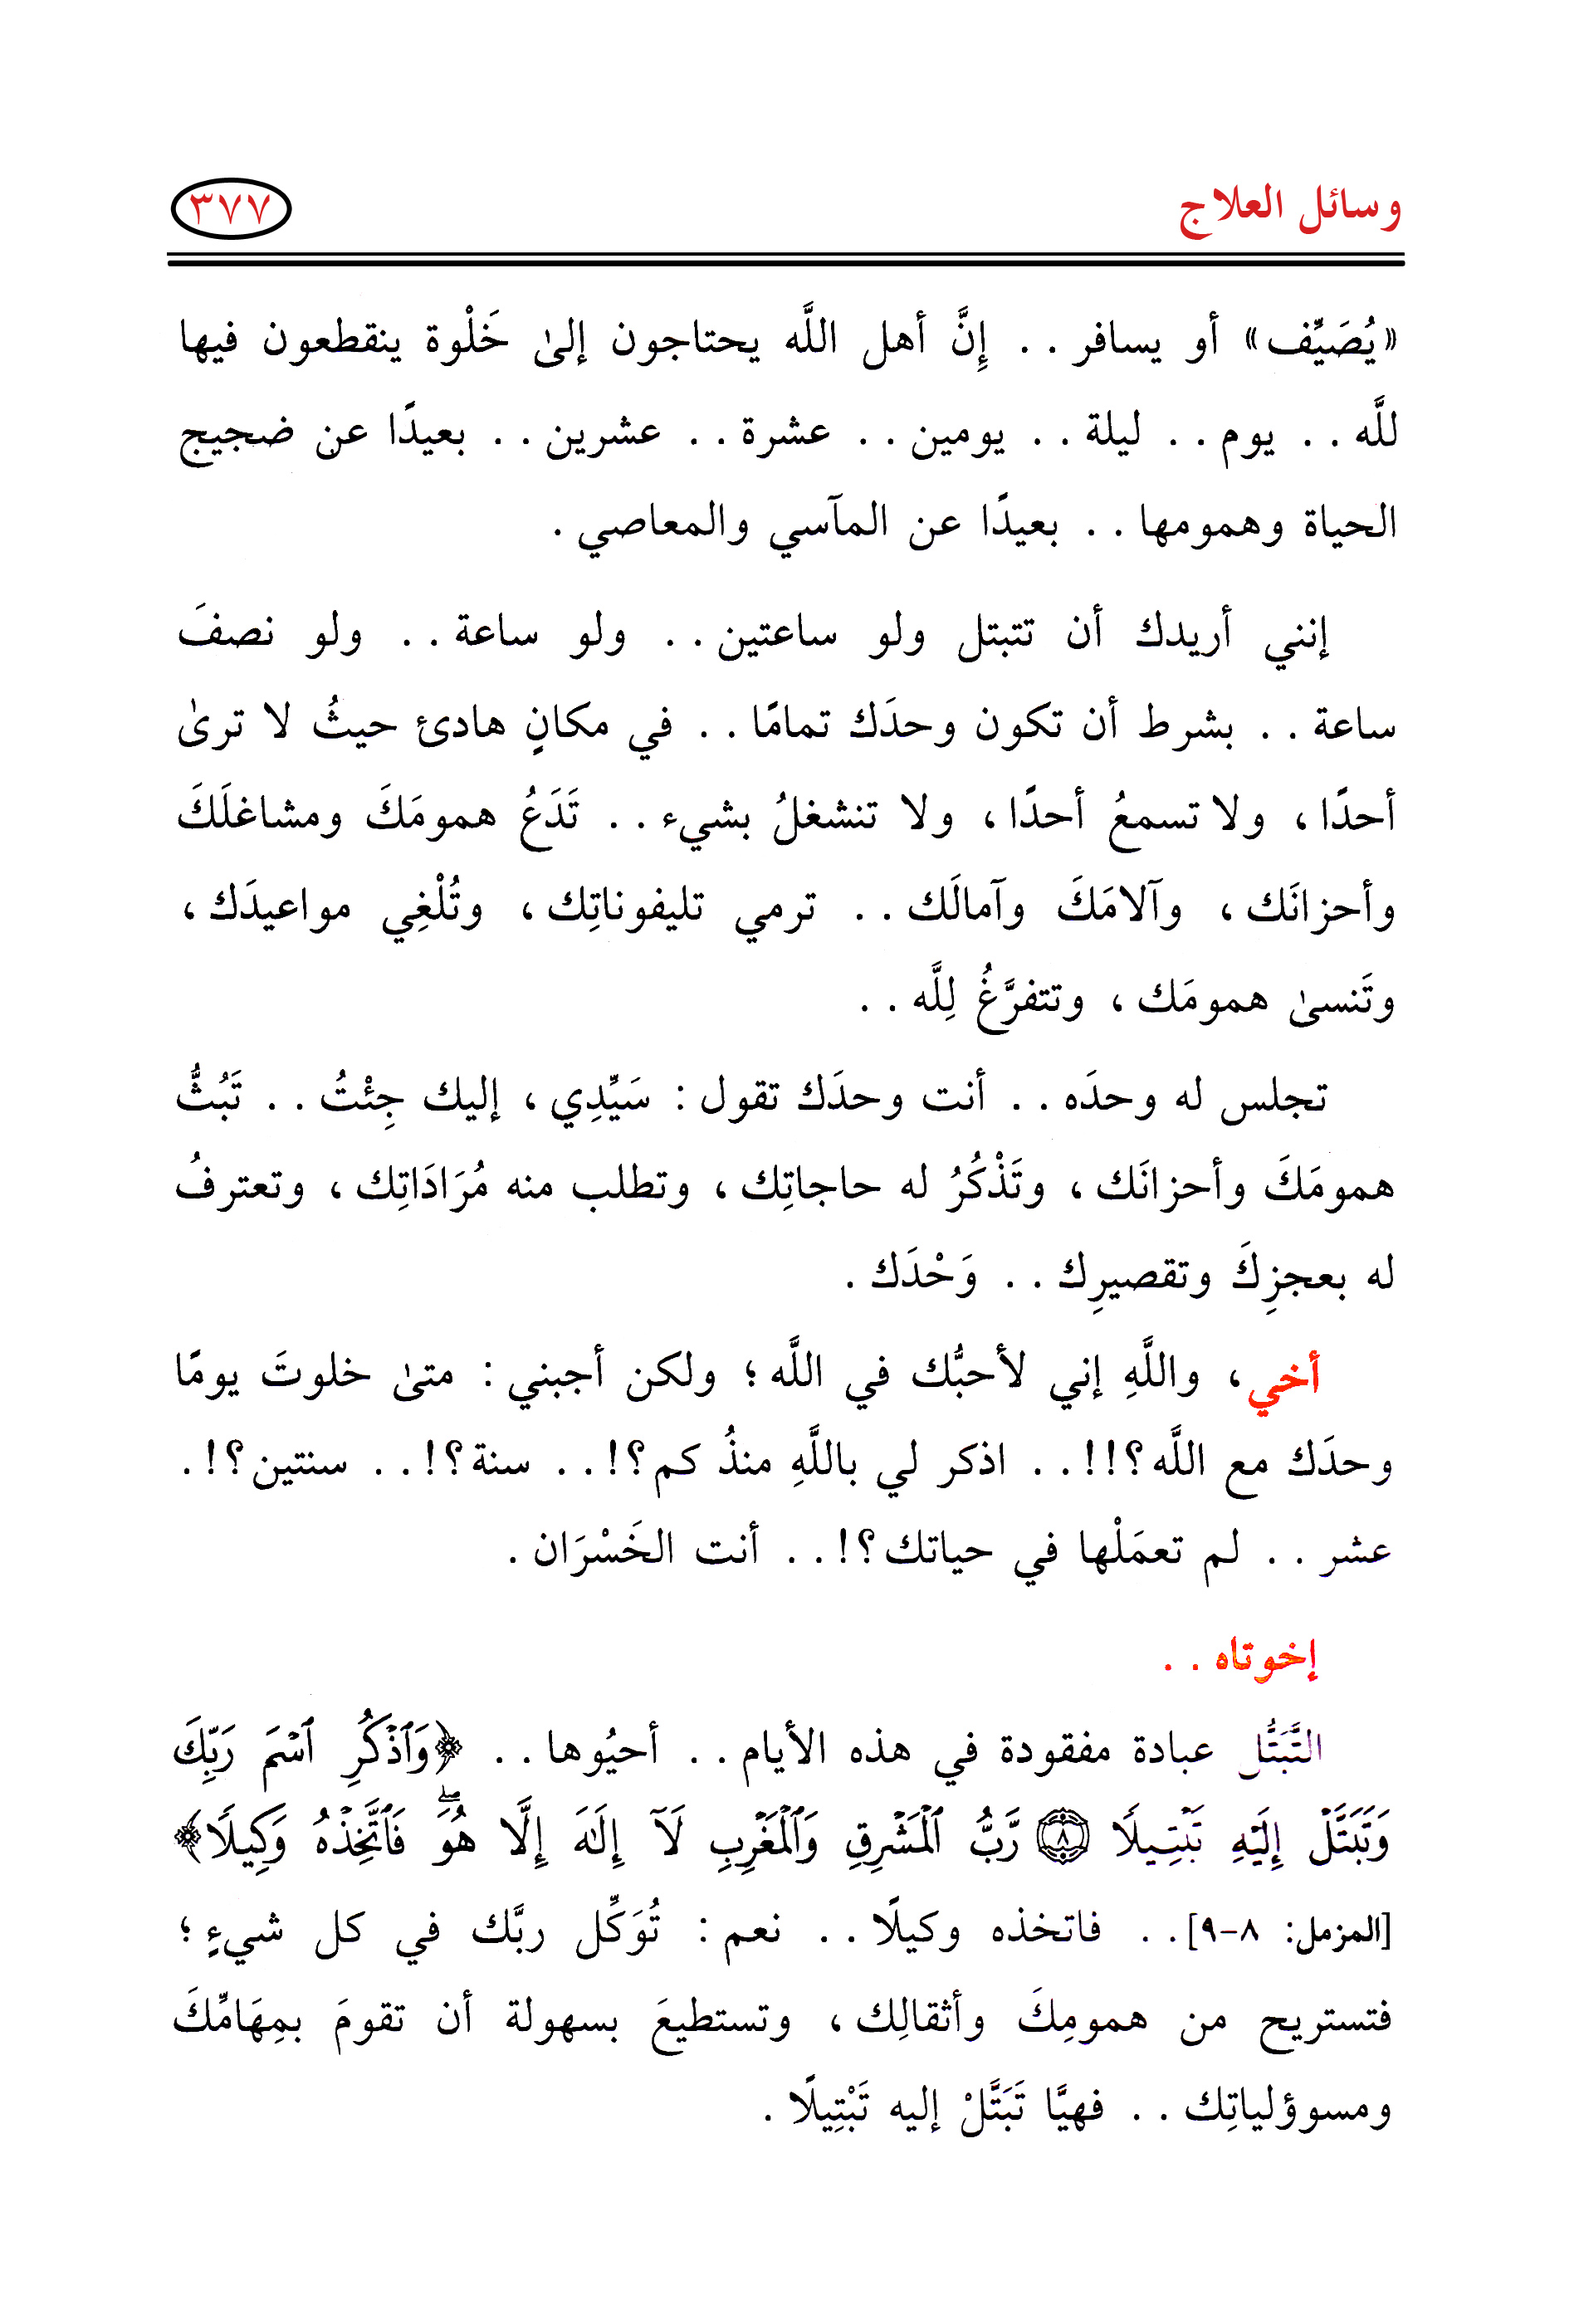 وسائل العلاج ٣٧٧
«يُصَيِّف» أو يسافر . . إِنَّ أهل اللَّه يحتاجون إلىٰ خَلْوة ينقطعون فيها
للَّه . . يوم . . ليلة . . يومين . . عشرة . . عشرين . . بعيدًا عن ضجيج
الحياة وهمومها . . بعيدًا عن المآسي والمعاصي .
إنني أريدك أن تتبتل ولو ساعتين . . ولو ساعة . . ولو نصفَ
ساعة . . بشرط أن تكون وحدَك تمامًا . . في مكانٍ هادئ حيثُ لا ترىٰ
أحدًا ، ولا تسمعُ أحدًا ، ولا تنشغلُ بشيء . . تَدَعُ همومَكَ ومشاغلَكَ
وأحزانَك ، وآلامَكَ وآمالَك . . ترمي تليفوناتِك ، وتُلْغِي مواعيدَك ،
وتَنسىٰ همومَك ، وتتفرَّغُ لِلَّه . .
تجلس له وحدَه . . أنت وحدَك تقول : سَيِّدِي ، إليك جِئْتُ . . تَبُثُّ
همومَكَ وأحزانَك ، وتَذْكُرُ له حاجاتِك ، وتطلب منه مُرَادَاتِك ، وتعترفُ
له بعجزِكَ وتقصيرِك . . وَحْدَك .
أخي ، واللَّهِ إني لأحبُّك في اللَّه ؛ ولكن أجبني : متىٰ خلوتَ يومًا
وحدَك مع اللَّه ؟!! . . اذكر لي باللَّهِ منذُ كم ؟! . . سنة ؟! . . سنتين ؟! .
عشر . . لم تعمَلْها في حياتك ؟! . . أنت الخَسْرَان .
إخوتاه . .
التَّبَتُّل عبادة مفقودة في هذه الأيام . . أحيُوها . . ﴿وَٱذْكُرِ ٱسْمَ رَبِّكَ
وَتَبَتَّلْ إِلَيْهِ تَبْتِيلًا ٨ رَّبُّ ٱلْمَشْرِقِ وَٱلْمَغْرِبِ لَآ إِلَٰهَ إِلَّا هُوَ ۖ فَٱتَّخِذْهُ وَكِيلًا﴾
[المزمل: ٨-٩] . . فاتخذه وكيلًا . . نعم : تُوَكِّل ربَّك في كل شيءٍ ؛
فتستريح من همومِكَ وأثقالِك ، وتستطيعَ بسهولة أن تقومَ بمِهَامِّكَ
ومسوؤلياتِك . . فهيَّا تَبَتَّلْ إليه تَبْتِيلًا .